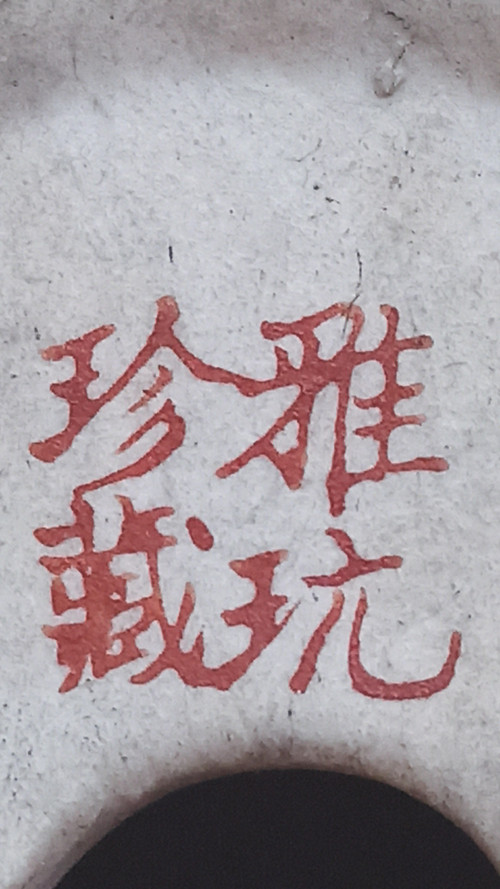 雅玩
珍藏